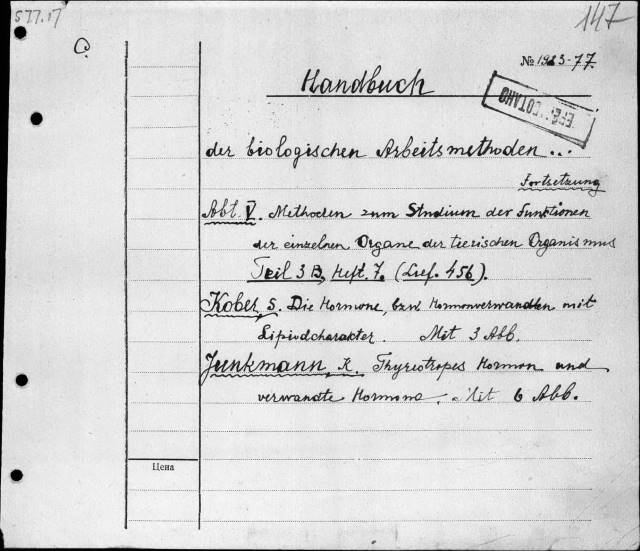 577.17
147
C.
№ 1923-77.
Handbuch
der biologischen Arbeitsmethoden...
Fortsetzung
Abt. V. Methoden zum Studium der Funktionen
der einzelnen Organe der tierischen Organismus
Teil 3 B, Heft. 7. (Lief. 456).
Kober, S. Die Hormone, bzw. Hormonverwandten mit
Lipiodcharakter. Mit 3 Abb.
Junkmann, K. Thyreotropes Hormon und
verwandte Hormone. Mit 6 Abb.
Цена